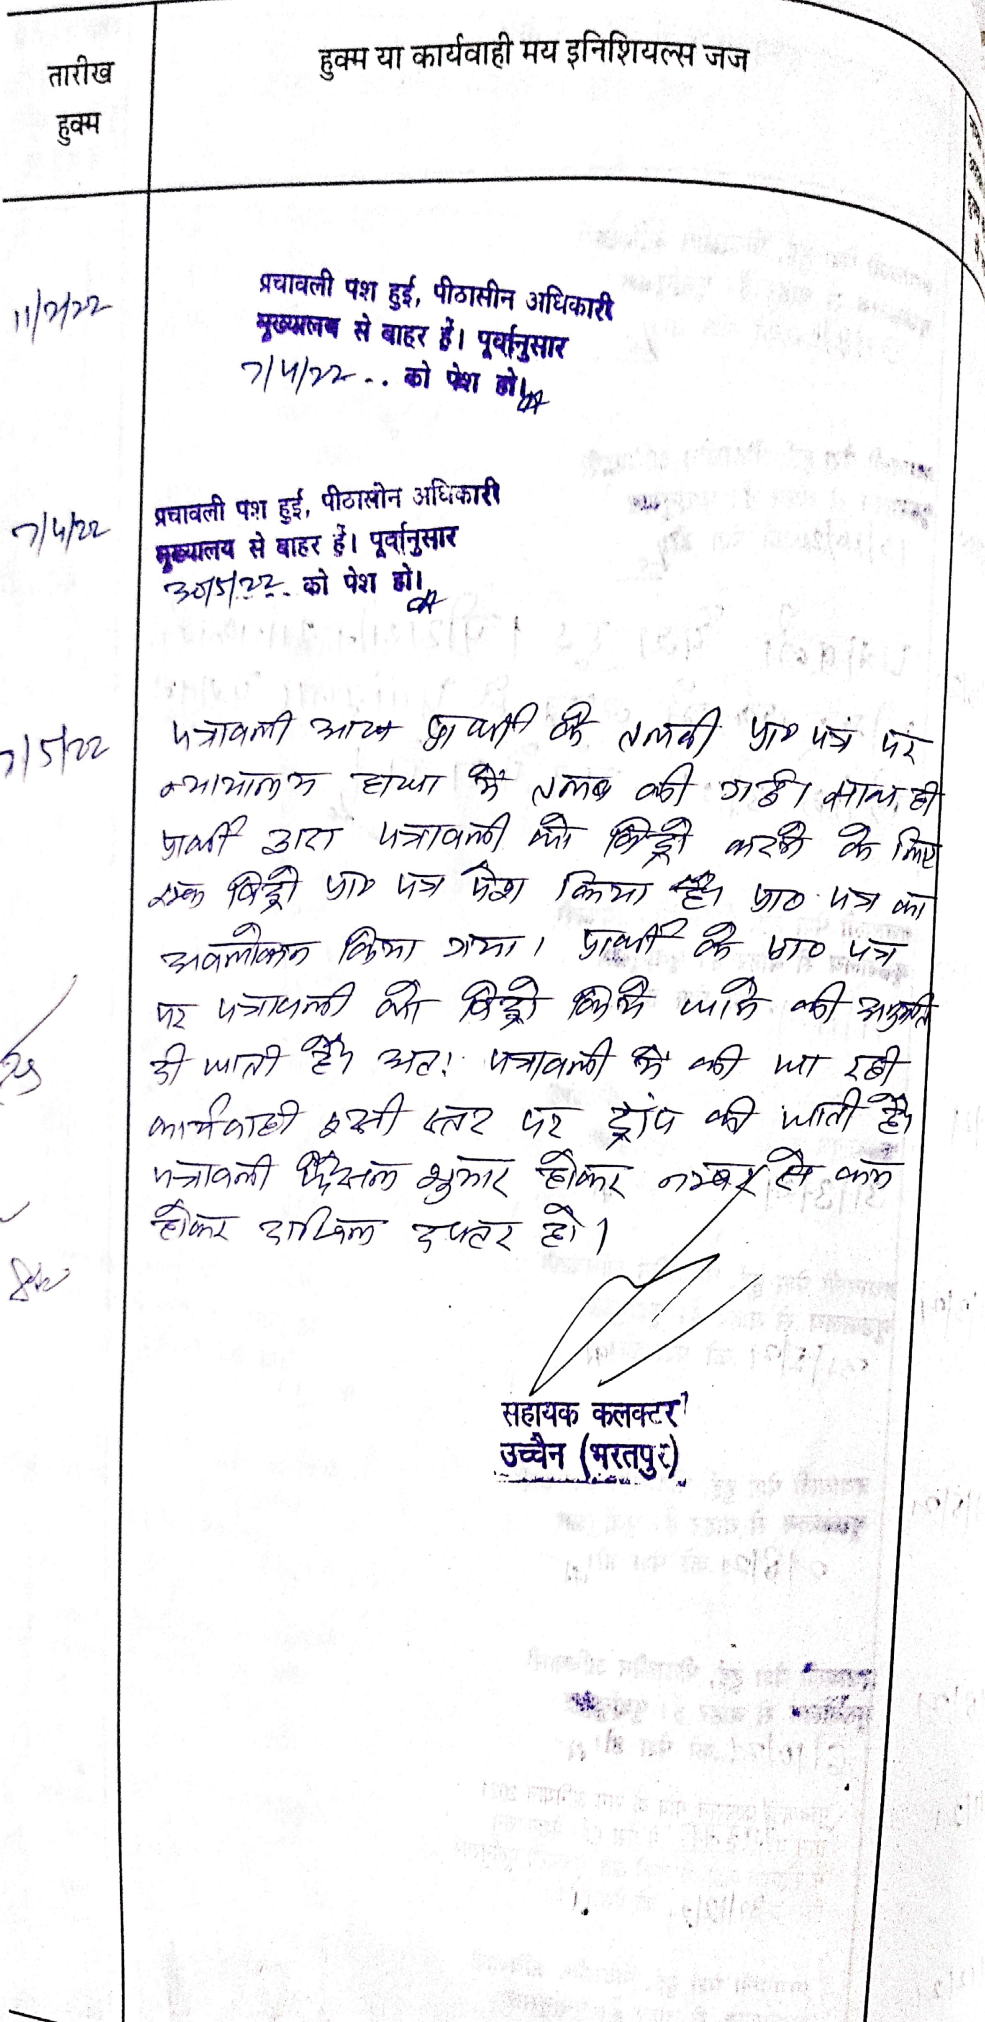 तारीख
हुक्म
हुक्म या कार्यवाही मय इनिशियल्स जज
11/2/22
प्रचावली पेश हुई, पीठासीन अधिकारी
मुख्यालय से बाहर हैं। पूर्वानुसार
7/4/22 .. को पेश हो।
7/4/22
प्रचावली पेश हुई, पीठासीन अधिकारी
मुख्यालय से बाहर हैं। पूर्वानुसार
30/5/22 . को पेश हो।
/5/22
पत्रावली आज प्रार्थी के तलबी प्रा० पत्र पर
न्यायालय हाजा में तलब की गई। साथ ही
प्रार्थी द्वारा पत्रावली को विड्रो करने के लिए
एक विड्रो प्रा० पत्र पेश किया है। प्रा० पत्र का
अवलोकन किया गया। प्रार्थी के प्रा० पत्र
पर पत्रावली को विड्रो किये जाने की अनुमति
दी जाती है। अतः पत्रावली में की जा रही
कार्यवाही इसी स्तर पर ड्रॉप की जाती है।
पत्रावली फैसल शुमार होकर नम्बर से कम
होकर दाखिल दफ्तर हो।
सहायक कलक्टर
उच्चैन (भरतपुर)